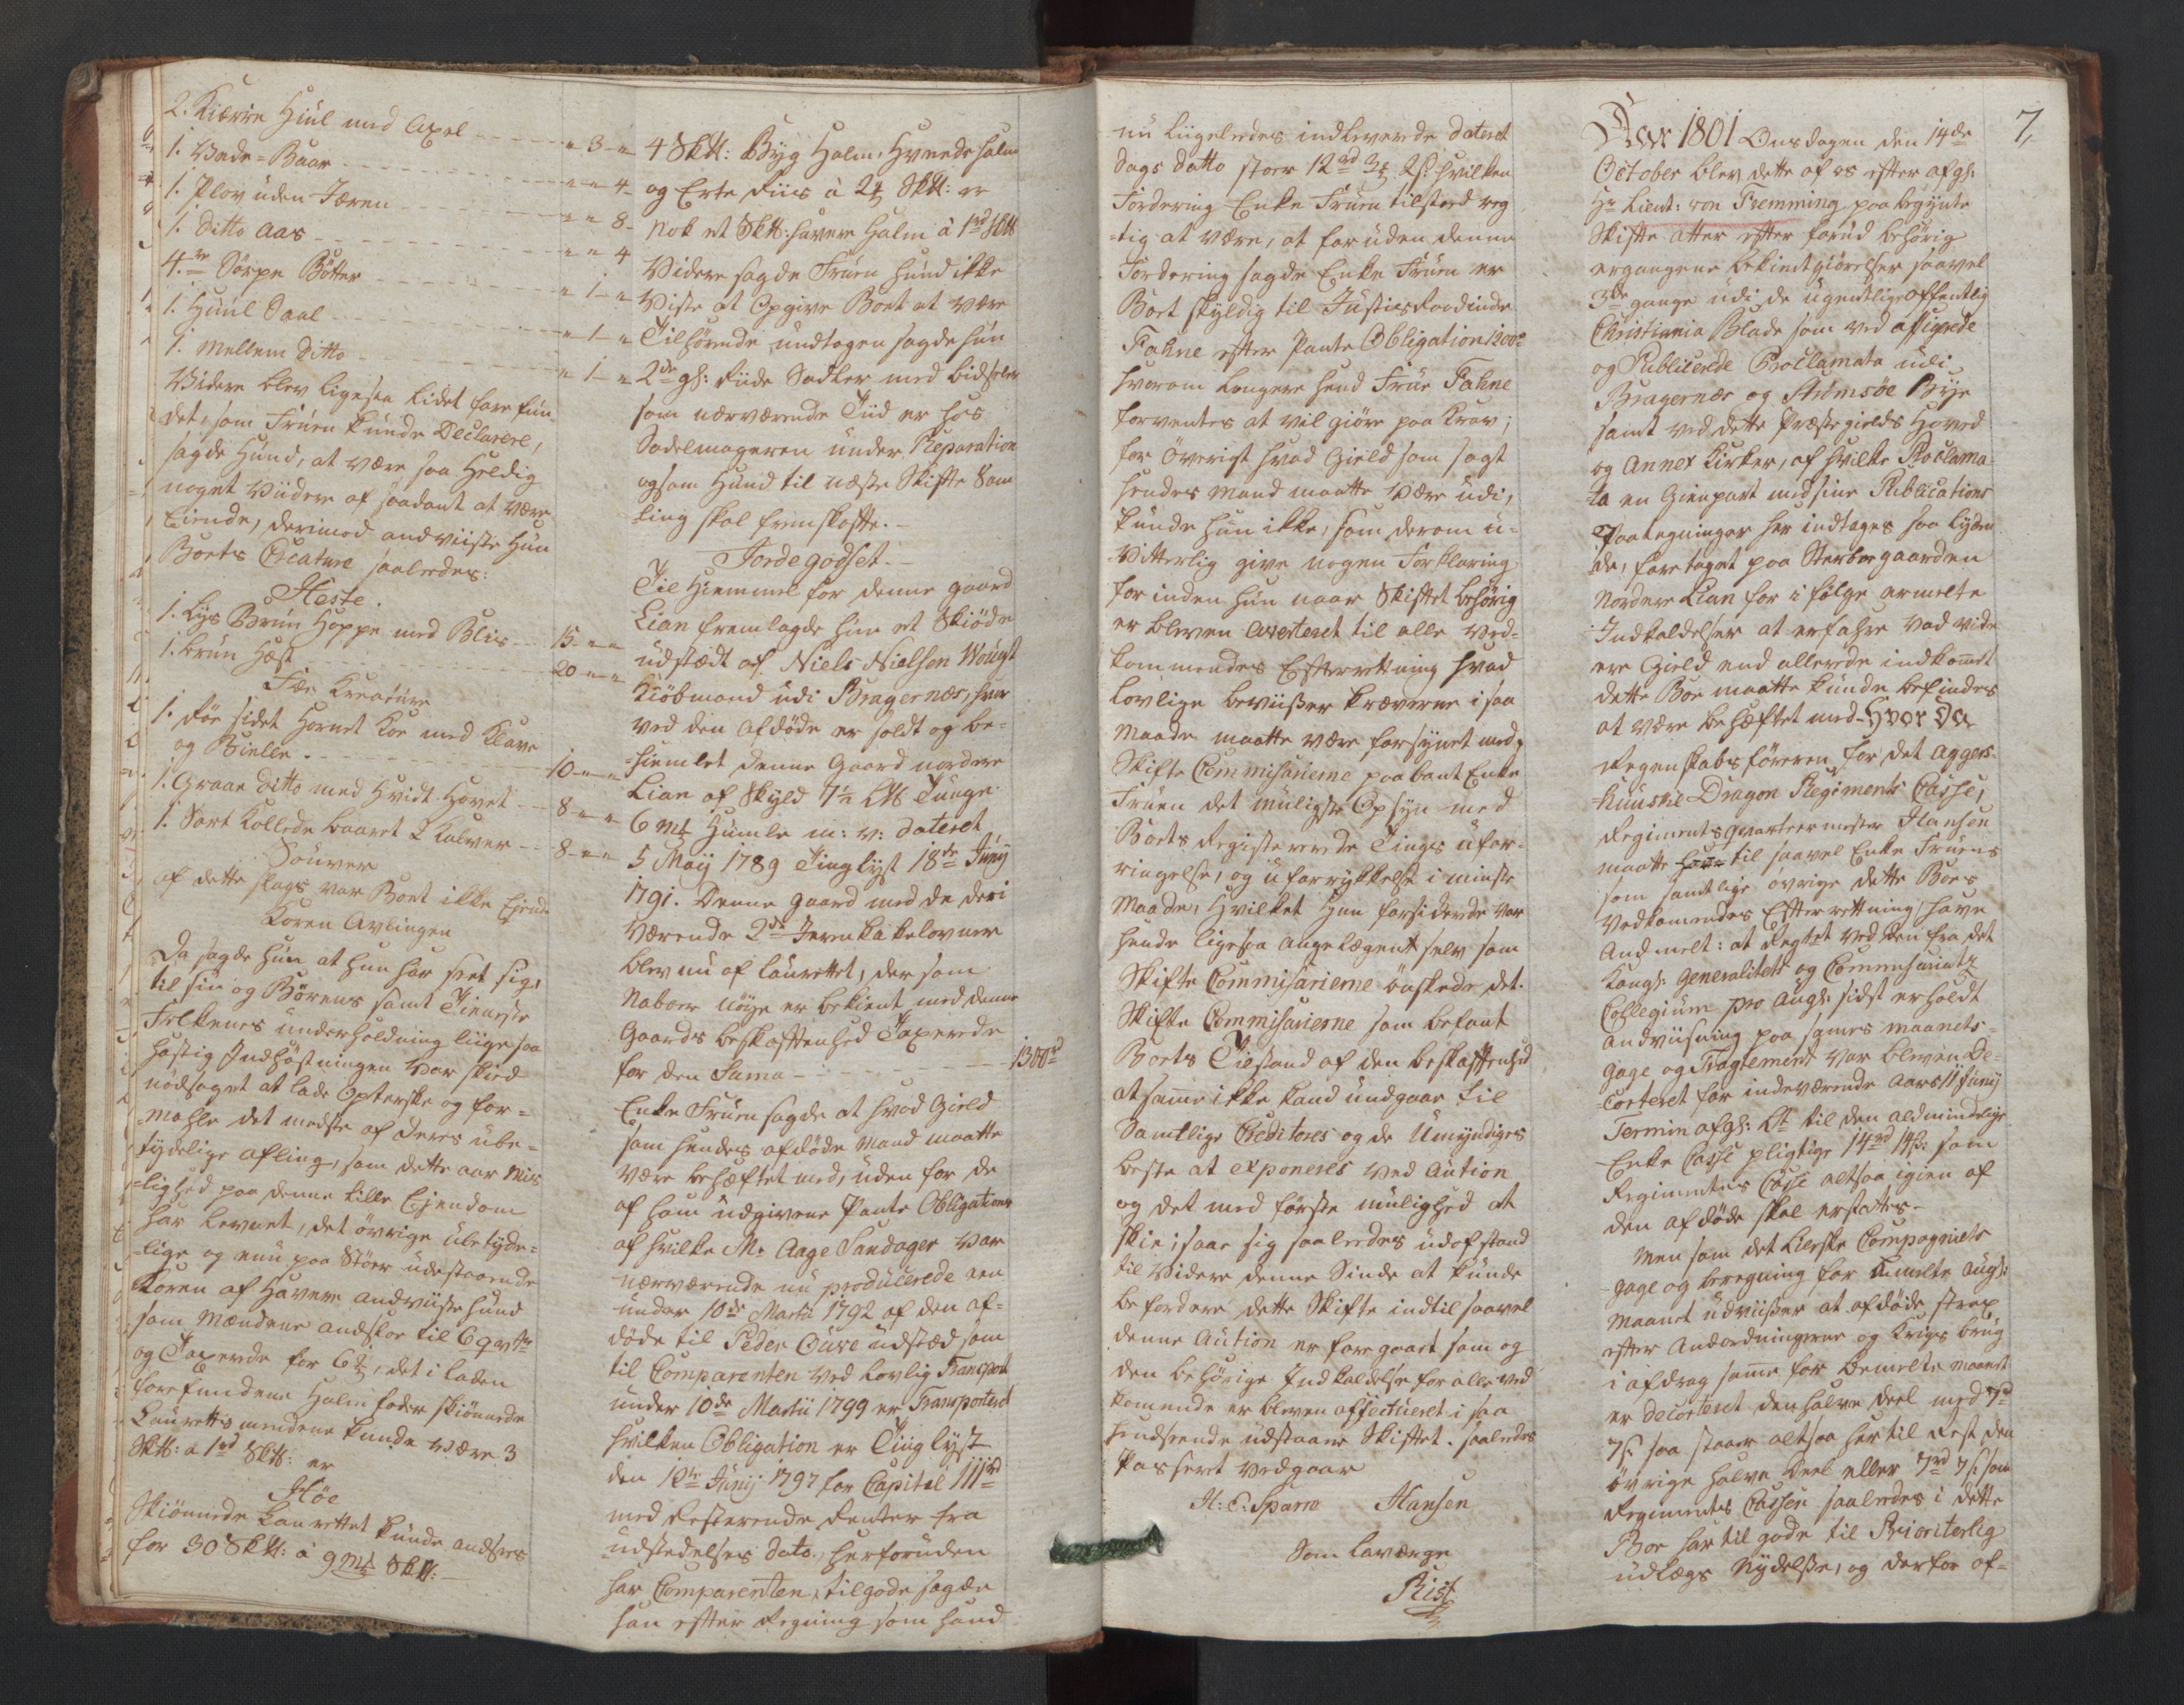 2. Kiærre Hiul med Axel - - - " 3 - "
1. Vade-Baar - - - " " 4 -
1. Plov uden Jæren - - - " " 8 -
1. ditto Aas - - - " " 4
4re Sørpe Bøtter - - - " 1 - "
1. Huul Saal - - - " 1 - "
1. Mellem ditto - - - " 1 - "
Videre blev ligesaa lidet forefun-
det, som Fruen kunde Declarere,
sagde Hund, at være saa Heldig
noget Viidere af saadant at være
Eiende, derimod andviiste Hun
Boets Creature saaledes:
Heste.
1. Lys Bruun Hoppe med Blis - - 15 - " "
1. bruun Hæst - - - 20 - " "
Fæe Kreature
1. Røe sidet Hornet Koe med Klave
og Bielle. - - - 10 - " "
1. Graae ditto med Hvidt Hovet - - 8 - " "
1. Sort Kollede baaret 2 Kalver - - 8 - " "
Souver
af dette slags var Boet ikke Ejende
Koren Avlingen
Da sagde hun at hun har seet sig,
til sin og Børens samt Tieneste
Folkenes underholdning liige saa
hastig Indhøstningen var skied
nødsaget at lade Opterske og for-
mahle det meste af deres ube-
tydelige afling, som dette aar Mis
lighed paa denne lille Ejendom
har levnet, det øvrige ubetyde-
lige og enu paa Støer udestaaende
Koren af Havere andviiste hund
som Mændene andsloe til 6 qvtr
og Taxerede for 6 , det i laden
forefundene Halm foder skiønnede
Laurettsmendene kunde være 3
Sktt: a 1rd Sktt: er
Høe
Skiønnede Laurettet kunde andsees
for 30 Sktt: á 9 mk Sktt: -
4 Sktt: Byg Halm, Hvede halm
og Erte Riis á 2 Sktt: er
Nok et Sktt: havere Halm á 1rd Sktt
Videre sagde Fruen hund ikke
Viste at Opgive Boet at være
Tilhørende undtagen sagde hun
2de gl: Riide Sadler med bidseler
som nærværende Tiid er hos
Sadelmageren under Reparation
og som Hund til næste Skifte Sam
ling skal fremskaffe. -
Jordegodset. -
Til Hiemmel for denne gaard
Lian fremlagde hun et Skiøde
udstædt af Niels Nielsen Wougt
Kiøbmand udi Bragernæs, hvor
ved den Afdøde er soldt og be-
hiemlet denne Gaard nordere
Lian af Skyld 7½ L℔ Tunge
6 mk Humle m: v: dateret
5 Maij 1789 Tinglyst 18de Junij
1791. Denne gaard med de deri
værende 2de Jern Kakelovner
blev nu af laurettet, der som
Naboer nøye er bekient med denne
Gaards beskaffenhed Taxerede
for den Suma - - - 1300rd
Enke Fruen sagde at hvad Gield
som hendes afdøde Mand maatte
være behæftet med, uden for de
af ham udgivene Pante Obligationer
af hvilke Mr Aage Sandager var
nærværende nu producerede een
under 10de Martii 1792 af den af-
døde til Peder Gure udstæd som
til Comparenten ved lovlig Transport
under 10de Martii 1799 er Transporteret
hvilken Obligation er Tinglyst
den 12te Junij 1797 for Capital 111rd
med Resterende Renter fra
udstedelses Dato, herforuden
har Comparenten, tilgode sagde
han efter Regning som hand
nu liigeledes indleverede dateret
dags Datto stoer 12rd 3 2s: hvilken
Fordering Enke Fruen tilstod rig
-tig at være, at foruden denne
Fordering sagde Enke Fruen er
Boet skyldig til Justiesraadinde
Fahne efter Pante Obligation 1200rd
hvorom længere hend Frue Fahne
forventes at vil giøre paa Krav;
for Øverigt hvad Gield som sagt
hendes Mand maatte være udi,
kunde hun ikke, som derom u-
vitterlig give nogen Forklaring
for inden hun naar Skiftet behørig
er bleven Averteret til alle Ved-
kommendes Efterretning hvad
lovlige beviiser kræverne i saa
Maade maatte være forsynet med,
Skifte Commisarierne paabant Enke
Fruen det muligste Opsyn med
Boets Registerede Tings ufor-
ringelse, og uforrykkelse i minste
Maade, Hvilket Hun forsikrede var
hende ligesaa angelægent selv som
Skifte Commisarierne ønskede det.
Skifte Commisarierne som befant
Boets Tilstand af den beskaffenhed
at samme ikke kand undgaae til
Samtlige Creditores og de Umyndiges
beste at exponeres ved Aution
og det med første mulighed at
skie; saae sig saaledes udof stand
til Videre denne Sinde at kunde
befordere dette Skifte indtil saavel
denne Aution er foregaaet som og
den behørige Indkaldelse for alle ved
komende er bleven effectueret i saa
hendseende udstaaer Skiftet. saaledes
Passeret vedgaar
H: C: Sparre Hansen
Som laværge
Rist
7,
Aar 1801 Onsdagen den 14de
October blev dette af os efter afgl:
Hr Lieut: von Tremming paa begynte
Skifte atter efter forud behørig
ergangene bekientgiørelser saavel
3de gange udi de ugentlige offentlig
Christiania Blade som ved affigerede
og Publicerede Proclamata udi
Bragernæs og Strømsøe Bye
samt ved dette Præstegields Hoved
og Annex Kirker, af hvilke Proclama-
ta en Gienpart med sine Publications
Paategninger her indtages saa lyden
de, foretaget paa Sterboegaarden
Nordere Lian for i følge ermelte
Indkaldelser at erfahre vad vide
ere Gield end allerede indkomet
dette Boe maatte kunde befindes
at være behæftet med - Hvor Da
Regenskabsføreren for det Aggers-
huusie Dragon Regiments Casse,
Regimentsqvarteermester Hansen
maatte til saavel Enke Fruens
som samtlige øvrige dette Boes
Vedkomendes Efterretning have
Andmelt: at Regtet ved den fra det
Kongl: Generalitets og Commisariats
Collegium pro Augl: sidst erholdt
andviisning paa sames maanets-
gage og Tragtement var bleven De-
corteret for indeværende Aars 11 Junij
Termin afgl: Lt til den aldmindelige
Enke Casse pligtige 14rd 14s: som
Regimentes Casse altsaa igien af
den afdøde skal erstattes -
Men som det Lierske Compagniets
gage og beregning for bemelte Augl:
Maanet udviiser at afdøde strax
efter Andordningerne og Kriges brug
i afdrag samme for bemelte Maanet
er decorteret den halve deel med 7rd
7s: saa staar altsaa her til Rest den
øvrige halve deel eller 7rd 7s: som
Regimentes Cassen saaledes i dette
Boe har til gode til Prioriterlig
udlægs Nydelse, og derfor af-